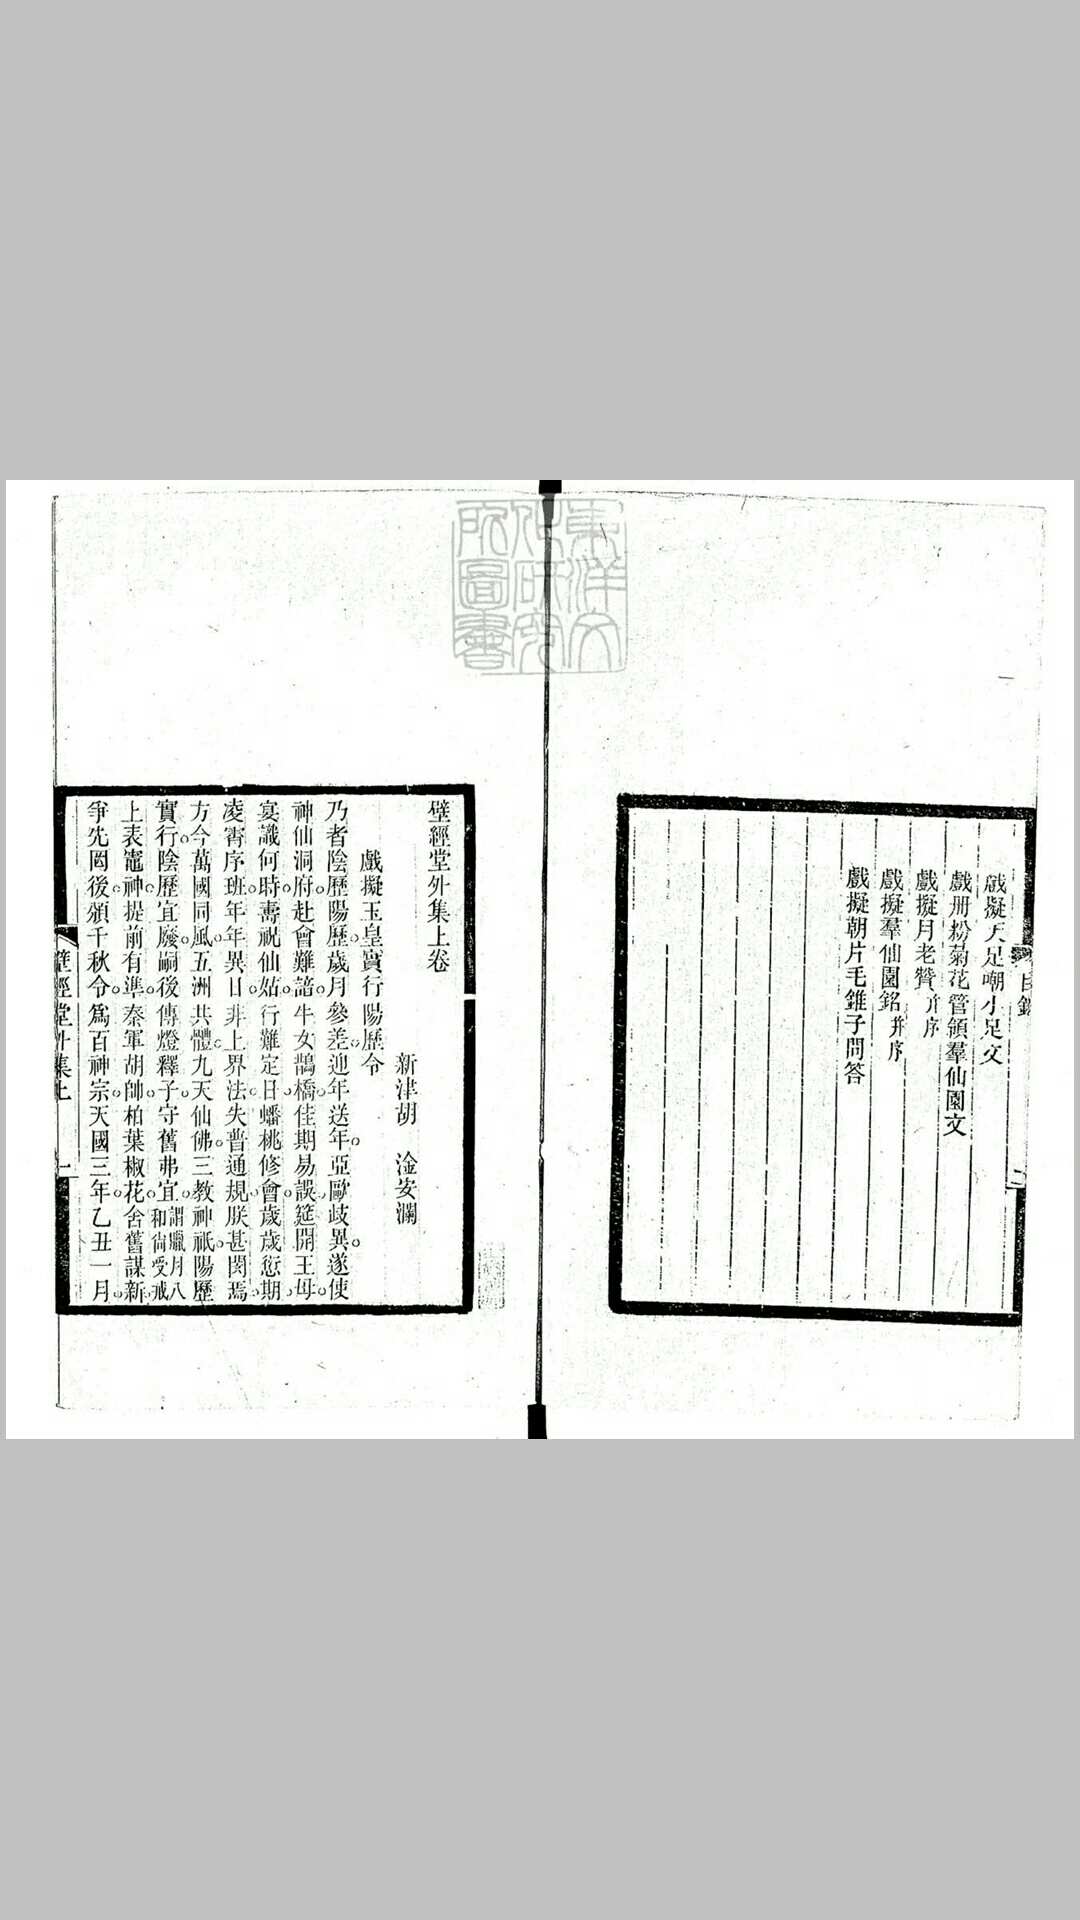 東洋文
化研究
所圖書
目錄
二
戲擬天足嘲小足文
戲册粉菊花管領羣仙園文
戲擬月老贊并序
戲擬羣仙園銘并序
戲擬朝片毛錐子問答
壁經堂外集上卷
新津胡　淦安瀾
戲擬玉皇實行陽歷令
乃者陰歷陽歷歲月參差迎年送年亞歐歧異遂使
神仙洞府赴會難諧牛女鵲橋佳期易誤筵開王母
宴識何時壽祝仙姑行難定日蟠桃修會歲歲愆期
凌霄序班年年異日非上界法失普通規朕甚閔焉
方今萬國同風五洲共體九天仙佛三教神祇陽歷
實行陰歷宜廢嗣後傳燈釋子守舊弗宜謂臘月八和尙受戒
上表竈神提前有準秦軍胡帥柏葉椒花舍舊謀新
爭先罔後頒千秋令爲百神宗天國三年乙丑一月
壁經堂外集上
一